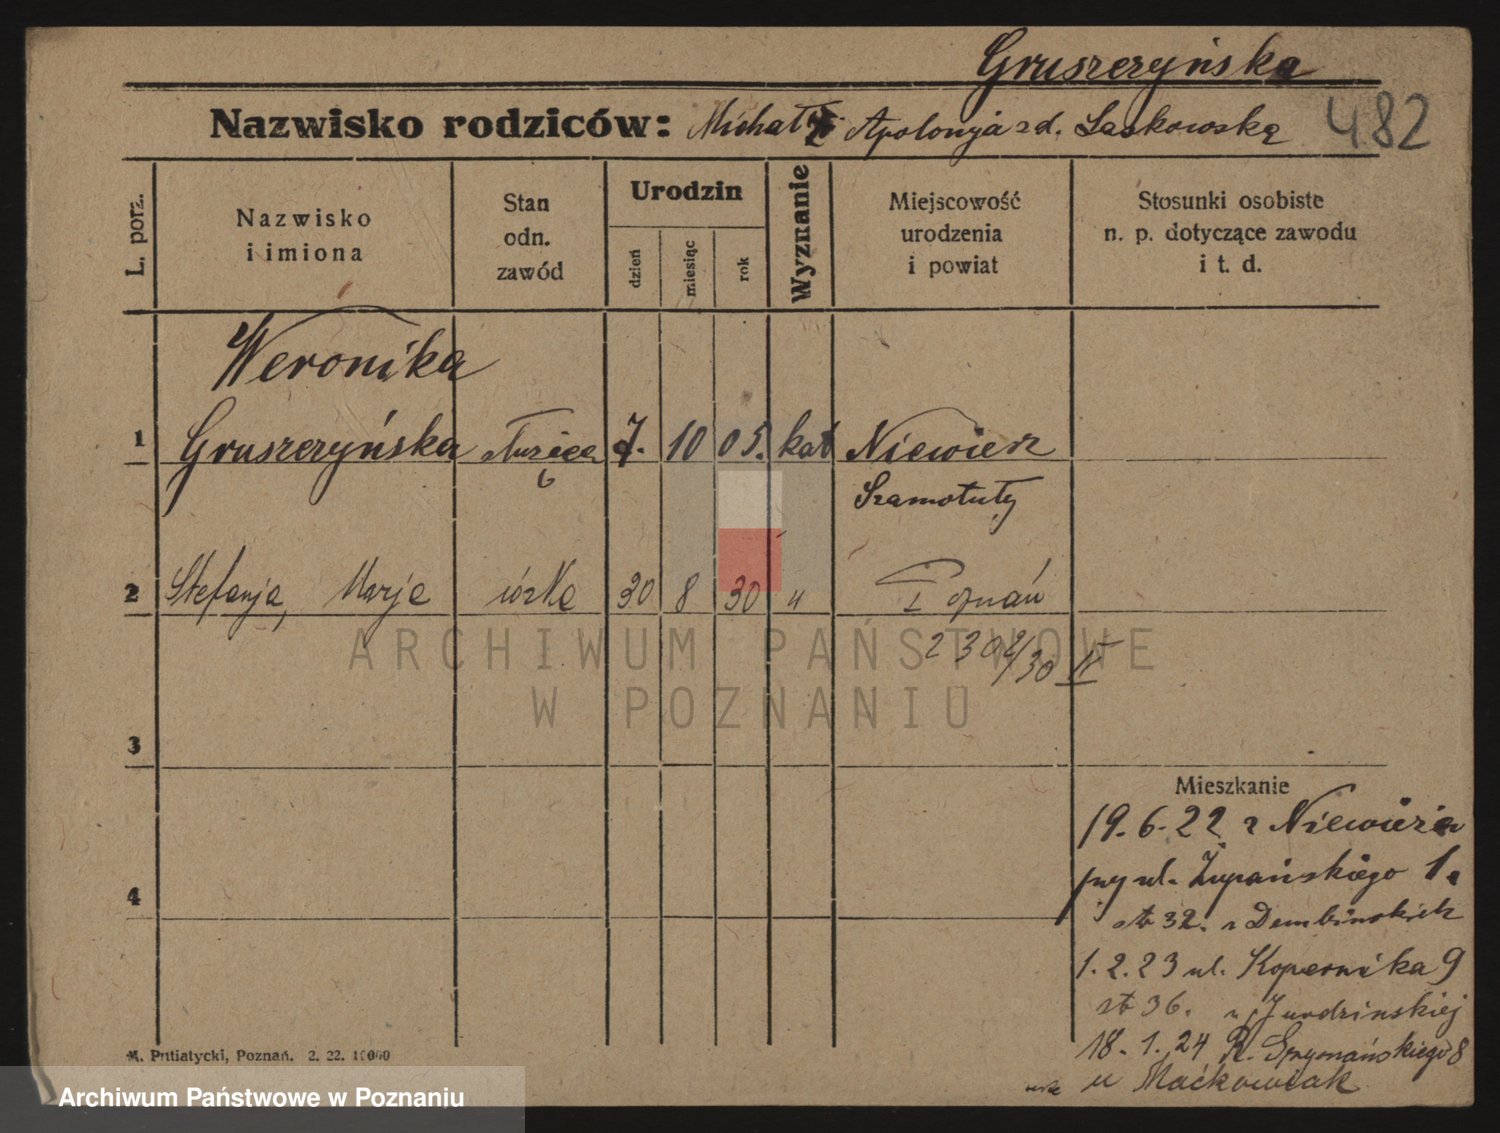 Gruszczyńska
Nazwisko rodziców: Michał i Apolonja zd. Laskowska 482
L. porz. Nazwisko i imiona Stan odn. zawód Urodzin dzień miesiąc rok Wyznanie Miejscowość urodzenia i powiat Stosunki osobiste n. p. dotyczące zawodu i t. d.
Weronika
1 Gruszczyńska służąca 7. 10 05. kat Niewierz
Szamotuły
2 Stefanja, Marja córka 30 8 30 " Poznań
2302/30 IV
3
Mieszkanie
19.6.22 z Niewierza
przy ul. Żupańskiego 1.
4
st 32. u Dembińskich
1.2.23 ul. Kopernika 9
st 36. u
18.1.24 R. Szymańskiego 8
u Maćkowiak
M. Putiatycki, Poznań. 2. 22. 10000
ARCHIWUM PAŃSTWOWE
W POZNANIU
Archiwum Państwowe w Poznaniu